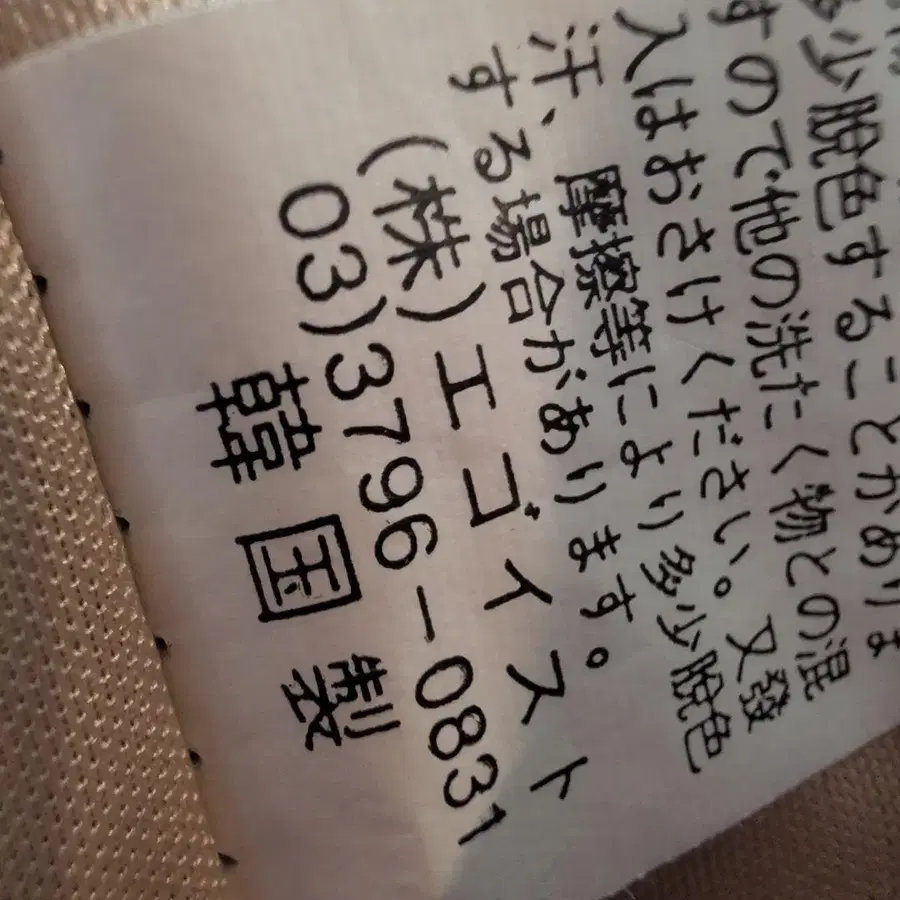 多少脱色することがありま
すので他の洗たく物との混
入はおさけください。又發
汗、摩擦等により多少脱色
する場合があります。
(株)エゴイスト
03)3796-0831
韓国製